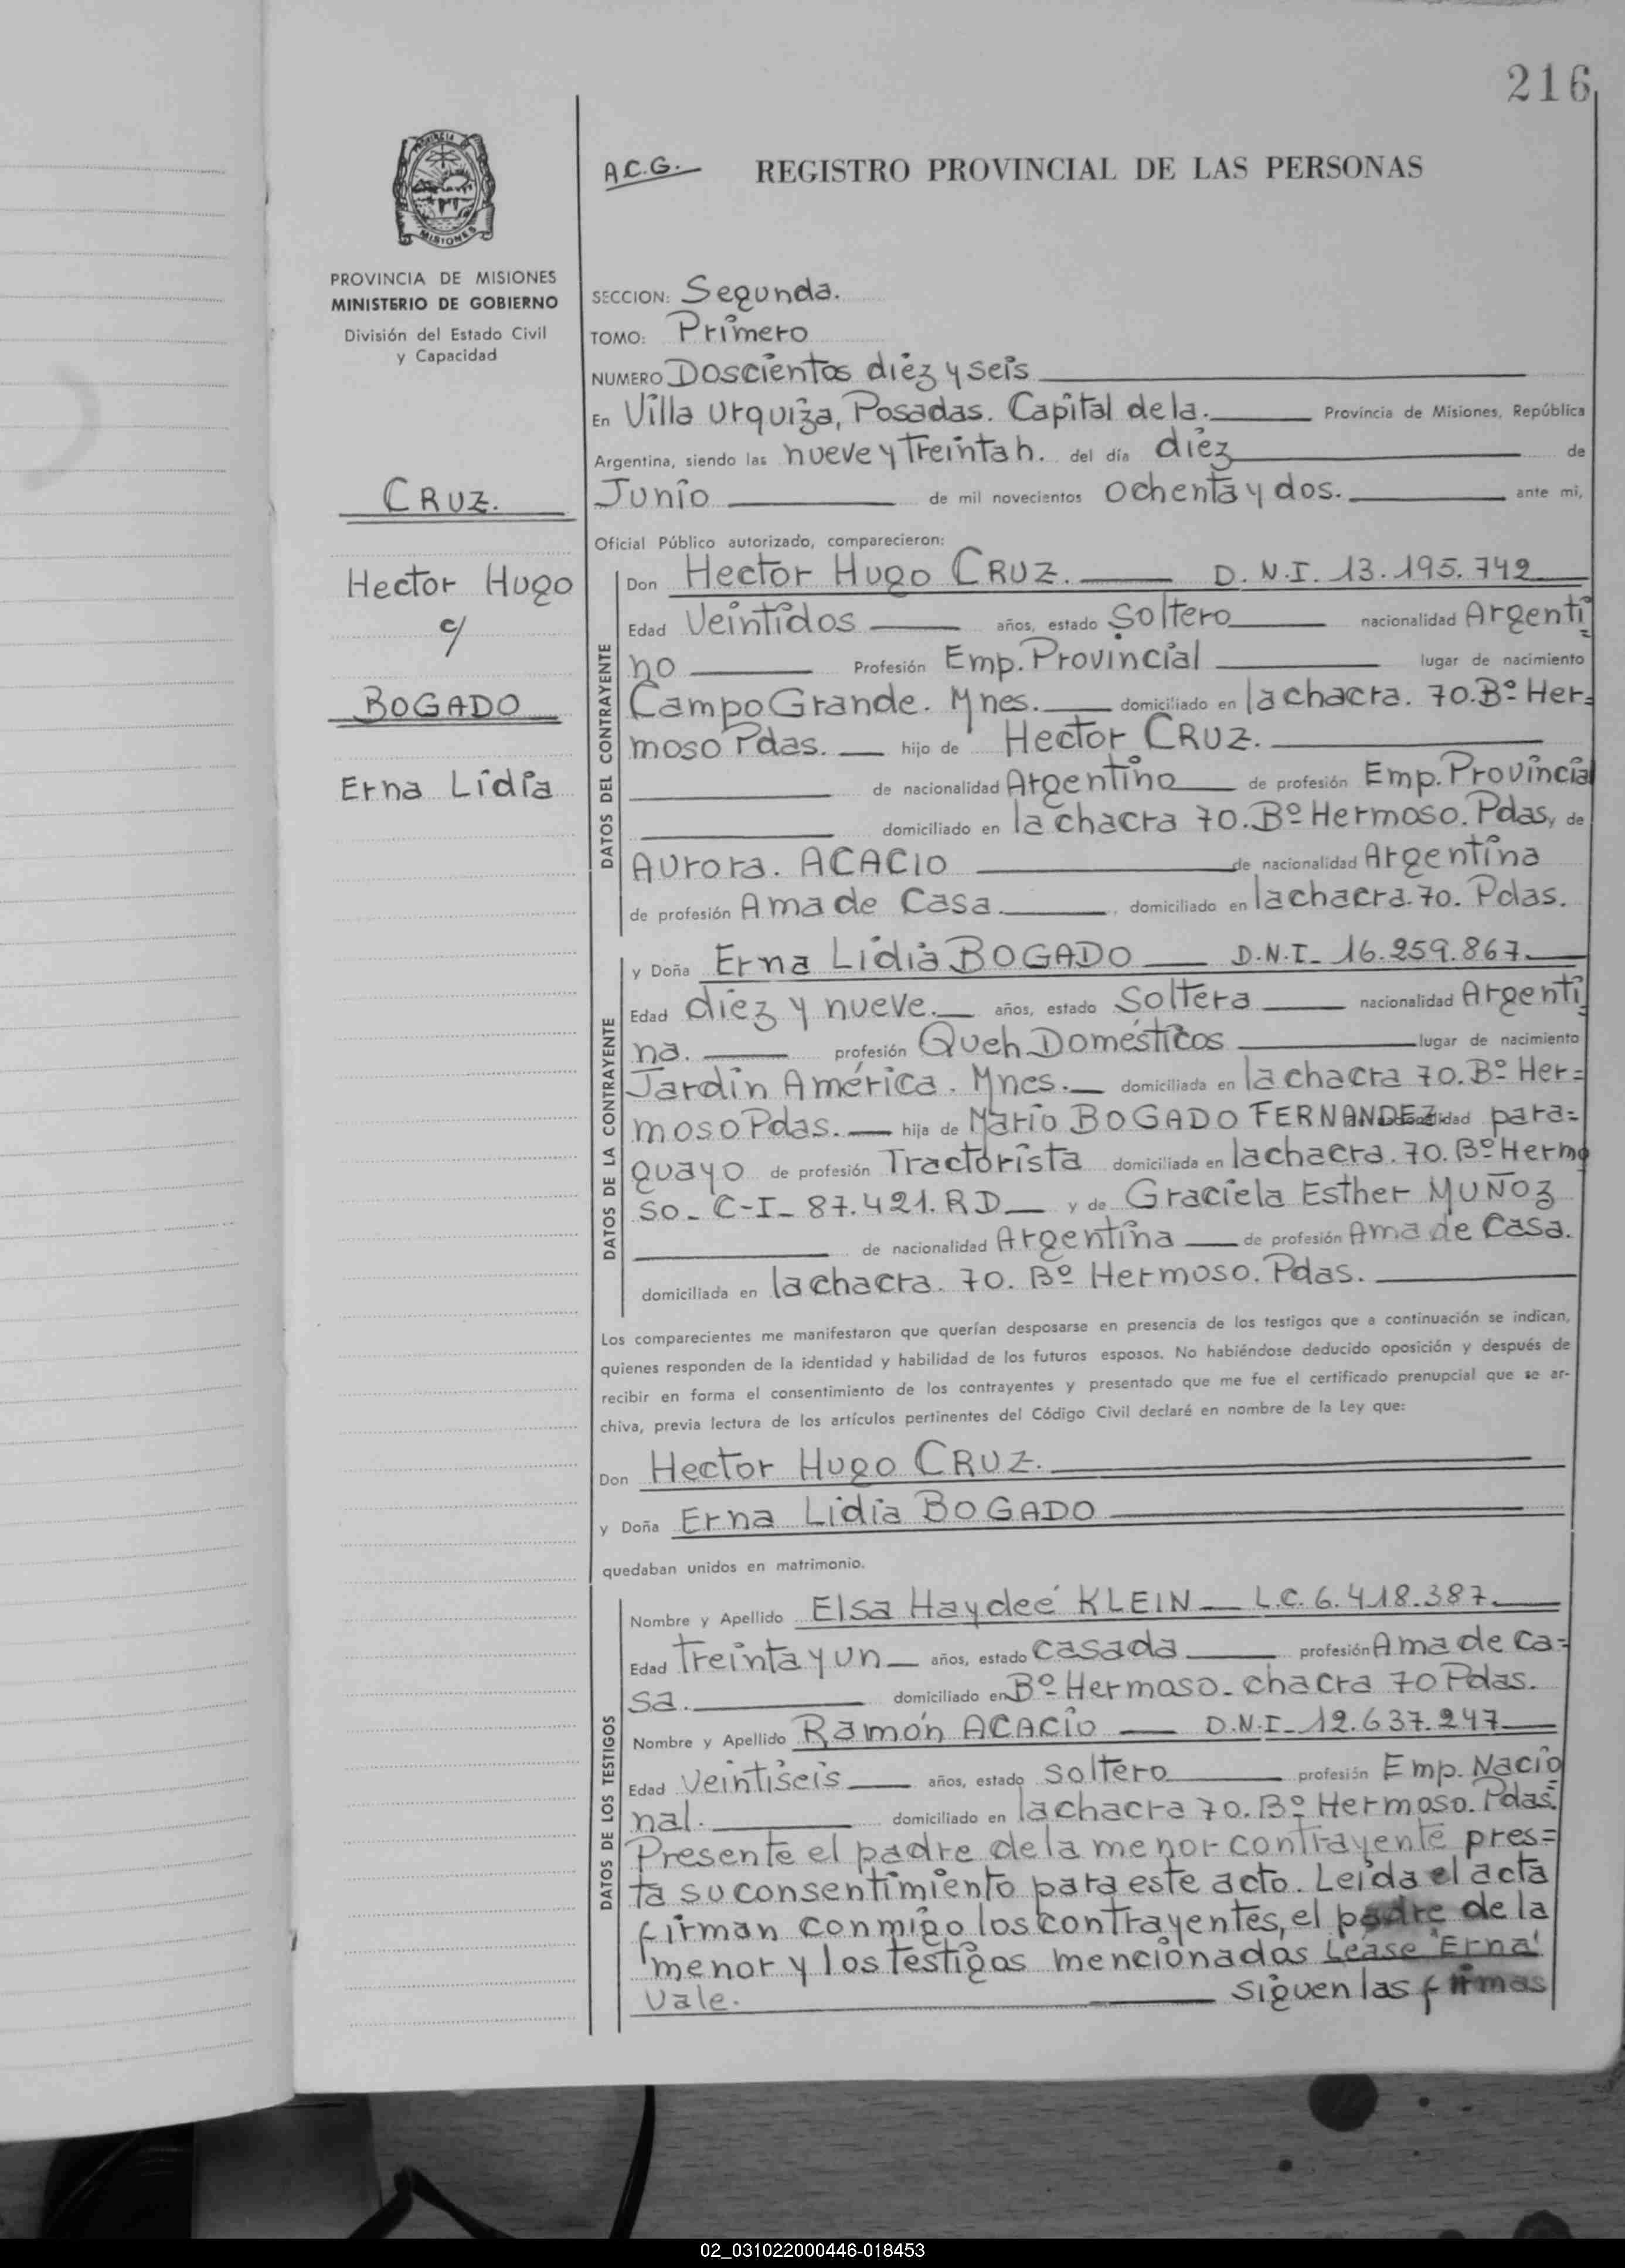 216
A.C.G. REGISTRO PROVINCIAL DE LAS PERSONAS
PROVINCIA DE
MISIONES
PROVINCIA DE MISIONES
MINISTERIO DE GOBIERNO
División del Estado Civil
y Capacidad
CRUZ.
Hector Hugo
c/
BOGADO
Erna Lidia
SECCION: Segunda.
TOMO: Primero
NUMERO Doscientos diez y seis
En Villa Urquiza, Posadas. Capital de la. Provincia de Misiones, República
Argentina, siendo las nueve y Treinta h. del día diez de
Junio de mil novecientos ochenta y dos. ante mi,
Oficial Público autorizado, comparecieron:
DATOS DEL CONTRAYENTE
Don Hector Hugo CRUZ. D.N.I. 13.195.742
Edad Veintidos años, estado Soltero nacionalidad Argenti
no Profesión Emp. Provincial lugar de nacimiento
Campo Grande. Mnes. domiciliado en la chacra. 70. Bº Her=
moso Pdas. hijo de Hector CRUZ.
de nacionalidad Argentino de profesión Emp. Provincial
domiciliado en la chacra 70. Bº Hermoso. Pdas, y de
Aurora. ACACIO de nacionalidad Argentina
de profesión Ama de Casa. domiciliada en la chacra. 70. Pdas.
DATOS DE LA CONTRAYENTE
y Doña Erna Lidia BOGADO D.N.I. 16.259.867.
Edad diez y nueve. años, estado Soltera nacionalidad Argenti
na. profesión Queh. Domésticos lugar de nacimiento
Jardín América. Mnes. domiciliada en la chacra 70. Bº Her=
moso Pdas. hija de Mario BOGADO FERNANDEZ para=
guayo de profesión Tractorista domiciliada en la chacra. 70. Bº Hermo
so. C-I- 87.421. RD y de Graciela Esther MUÑOZ
de nacionalidad Argentina de profesión Ama de Casa.
domiciliada en la chacra. 70. Bº Hermoso. Pdas.
Los comparecientes me manifestaron que querían desposarse en presencia de los testigos que a continuación se indican,
quienes responden de la identidad y habilidad de los futuros esposos. No habiéndose deducido oposición y después de
recibir en forma el consentimiento de los contrayentes y presentado que me fue el certificado prenupcial que se ar-
chiva, previa lectura de los artículos pertinentes del Código Civil declaré en nombre de la Ley que:
Don Hector Hugo CRUZ.
y Doña Erna Lidia BOGADO
quedaban unidos en matrimonio.
DATOS DE LOS TESTIGOS
Nombre y Apellido Elsa Haydeé KLEIN L.C. 6.418.387.
Edad Treinta y un años, estado casada profesión Ama de Ca=
sa. domiciliado en Bº Hermoso. chacra 70 Pdas.
Nombre y Apellido Ramón ACACIO D.N.I. 12.637.247
Edad Veintiseis años, estado soltero profesión Emp. Nacio
nal. domiciliado en la chacra 70. Bº Hermoso. Pdas.
Presente el padre de la menor contrayente pres=
ta su consentimiento para este acto. Leída el acta
firman conmigo los contrayentes, el padre de la
menor y los testigos mencionados Lease "Erna"
Vale. siguen las firmas
02_031022000446-018453